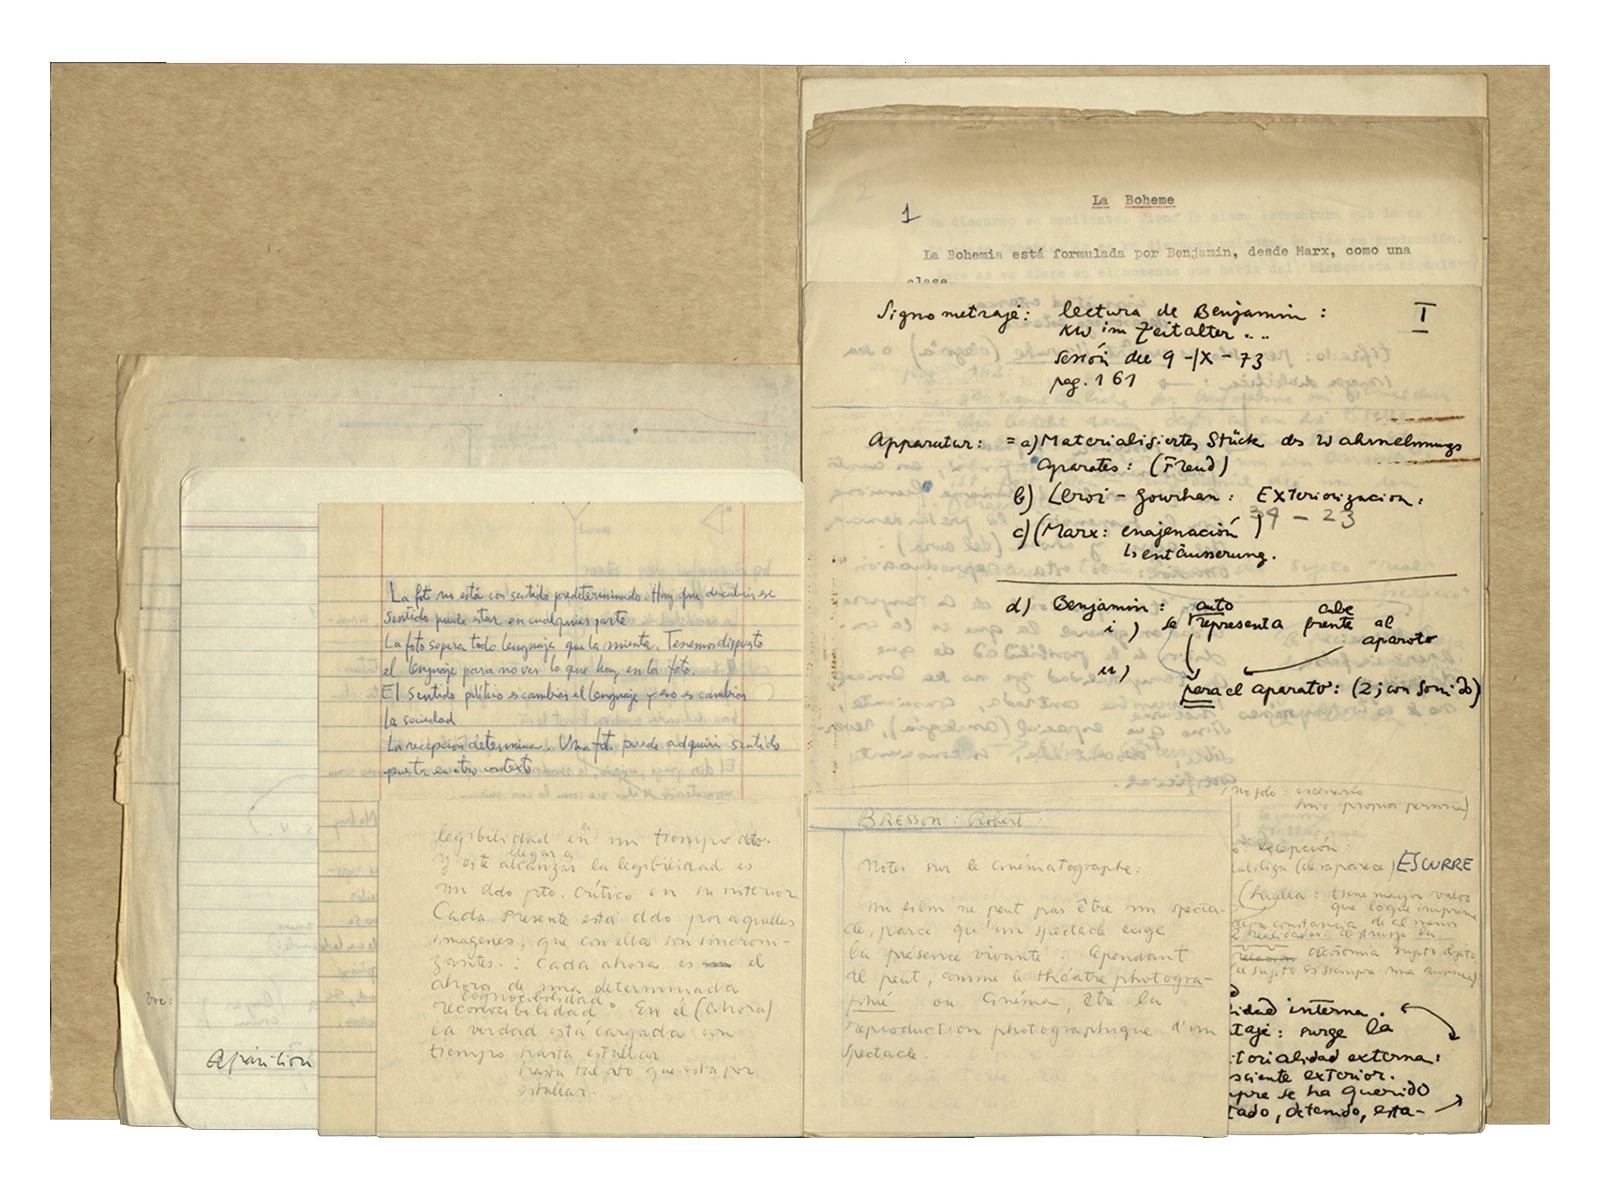 La Boheme
1
La Bohemia está formulada por Benjamin, desde Marx, como una
clase.
Signo metraje: lectura de Benjamin:
I
KW im Zeitalter ...
sesión del 9-IX-73
pag. 161
Apparatur: = a) Materialisiertes Stück des Wahrnehmungs
aparates: (Freud)
b) Leroi-Gourhan: Exteriorizacion:
39 - 23
c) (Marx: enajenación)
entäusserung.
d) Benjamin: auto cabe
i) se representa frente al
aparato
ii)
para el aparato: (2; con sonido)
La foto no está con sentido predeterminado. Hay que descubrir ese
sentido puede estar en cualquier parte
La foto supera todo lenguaje que la mienta. Tenemos dispuesto
el lenguaje para no ver lo que hay en la foto.
El sentido político es cambiar el lenguaje y eso es cambiar
la sociedad
La recepción determina. Una foto puede adquirir sentido
puesta en otro contexto
legibilidad en un tiempo dto.
llegar a
Y este alcanzar la legibilidad es
un ddo pto. crítico en su interior
Cada presente está ddo por aquellas
imagenes, que con ella son sincroni-
zantes.: Cada ahora es el
ahora de una determinada
cognoscibilidad
reconocibilidad. En él (ahora)
la verdad está cargada con
tiempo hasta estallar
hasta tal pto que esta por
estallar.
BRESSON: Robert:
Notes sur le cinématographe:
Un film ne peut pas être un specta-
cle, parce qu'un spectacle exige
la présence vivante: Cependant
il peut, comme le théâtre photogra-
phié ou cinéma, être la
reproduction photographique d'un
spectacle.
no solo: escenario
sino propias persona)
recepción:
(desaparece) ESCURRE
(huella: tiene mayor valor
que lo que imprime
constancia de al menos
2 realidades: destruye la
relación sujeto objeto
(el sujeto es siempre una ausencia)
lidad interna.
taje: surge la
torialidad externa:
sciente exterior.
mpre se ha querido
tado, detenido, esta-
voz:
Aparition